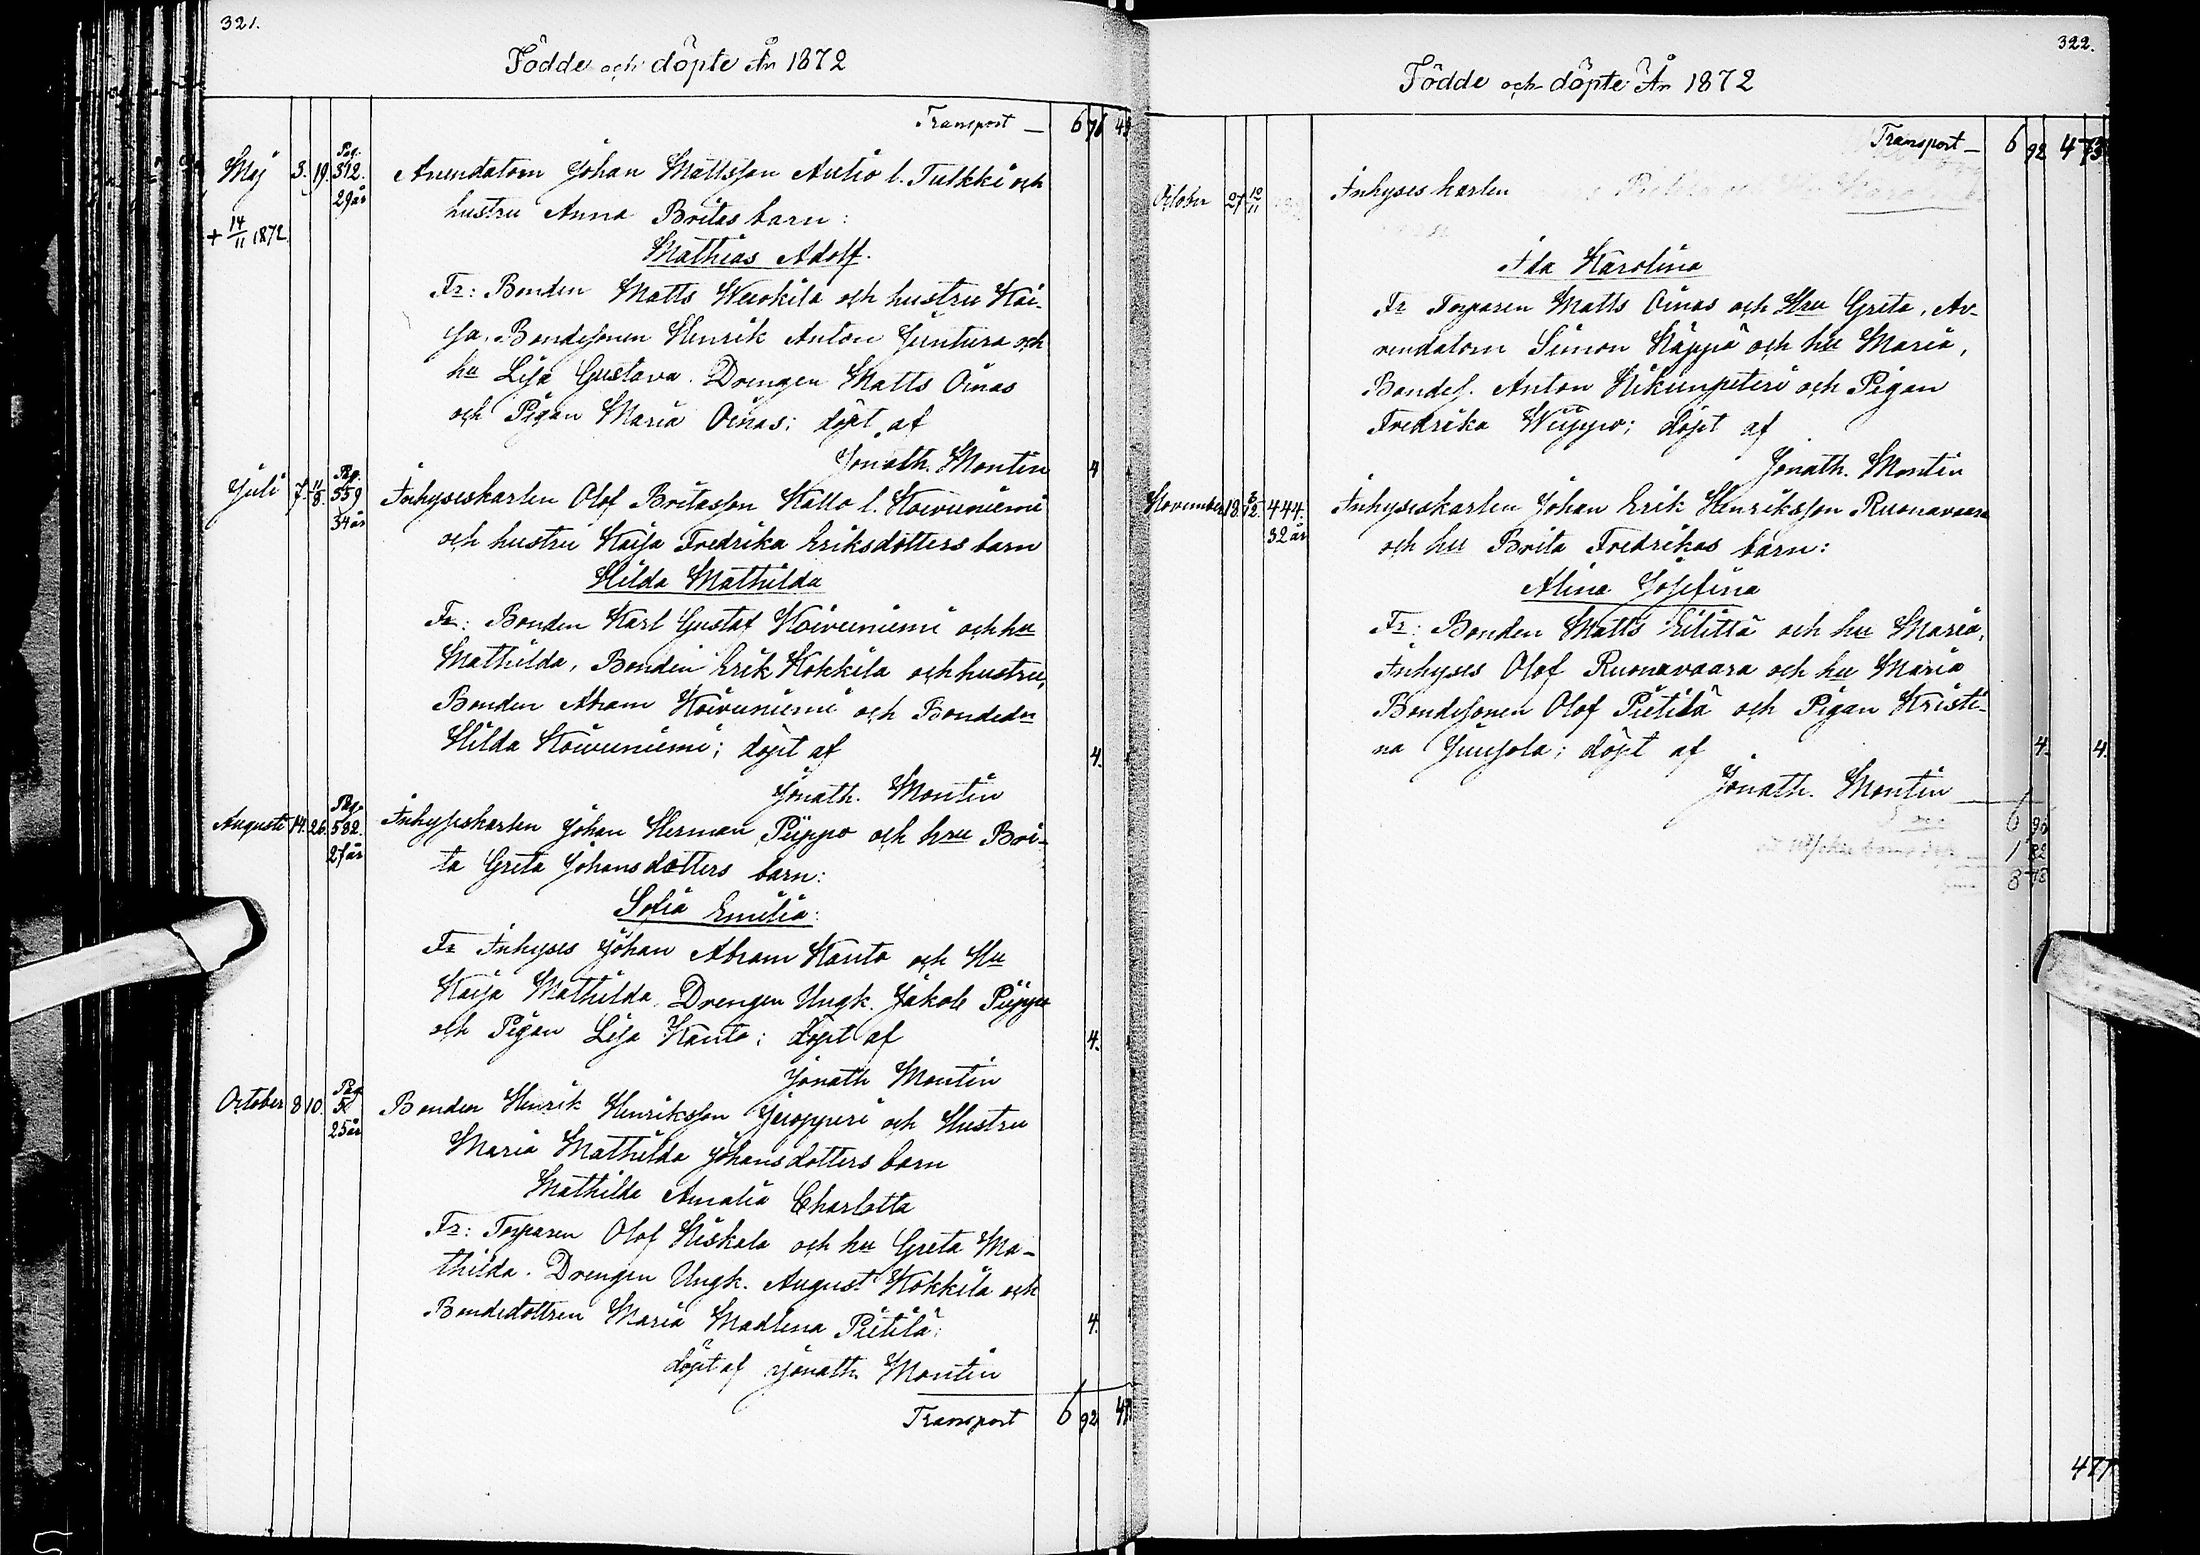 321.
Födde och döpte År 1872
Transport — 6 76
Maj 3. 19. Pag. 312. 29 år Arrendatorn Johan Mattsson Autio l. Tulkki och
hustru Anna Britas barn:
+ 14/11 1872
Mathias Adolf.
Fr: Bonden Matts Wuokila och hustru Kai-
sa, Bondesonen Henrik Anton Juntura och
hu Lisa Gustava. Drengen Matts Oinas
och Pigan Maria Oinas; döpt af
Jonath. Montin 4
Juli 7. 11/8. Pag. 559 34 år Inhyseskarlen Olof Britasson Kallo l. Koivuniemi
och hustru Kaisa Fredrika Eriksdotters barn
Hilda Mathilda
Fr: Bonden Karl Gustaf Koivuniemi och hu
Mathilda, Bonden Erik Kokkila och hustru,
Bonden Abram Koivuniemi och Bondedn
Hilda Koivuniemi; döpt af 4.
Jonath. Montin
Augusti 14. 26. Pag. 582. 27 år Inhyseskarlen Johan Herman Piippo och hru Bri-
ta Greta Johansdotters barn:
Sofia Emilia:
Fr Inhyses Johan Abram Kauto och Hu
Kaisa Mathilda. Drengen Ungk. Jakob Piippo
och Pigan Lisa Kauto; döpt af 4.
Jonath Montin
October 8 10. Pag 5 25 år Bonden Henrik Henriksson Juopperi och Hustru
Maria Mathilda Johansdotters barn
Mathilda Amalia Charlotta
Fr: Torparen Olof Hiskala och hu Greta Ma-
thilda. Drengen Ungk. August Kokkila och
Bondedottren Maria Madlena Pietilä; 4.
döpt af Jonath. Montin
Transport 6 92
322.
Födde och döpte År 1872
Transport — 6 92 473
October 27 10/11 Inhyses karlen
Ida Karolina
Fr Torparen Matts Oinas och Hru Greta, Ar-
rendatorn Simon Näppä och hu Maria,
Bondes. Anton Nikunpeteri och Pigan
Fredrika Wiippo; döpt af
Jonath. Montin
November 18. 444. 32 år Inhyseskarlen Johan Erik Henriksson Ruonavaara
och hu Brita Fredrikas barn:
Alina Josefina
Fr: Bonden Matts Eilittä och hu Maria,
Inhyses Olof Ruonavaara och hu Maria
Bondesonen Olof Pietilä och Pigan Kristi-
na Juusola; döpt af 4. 4.
Jonath. Montin
6 96
1 82
8 78
477